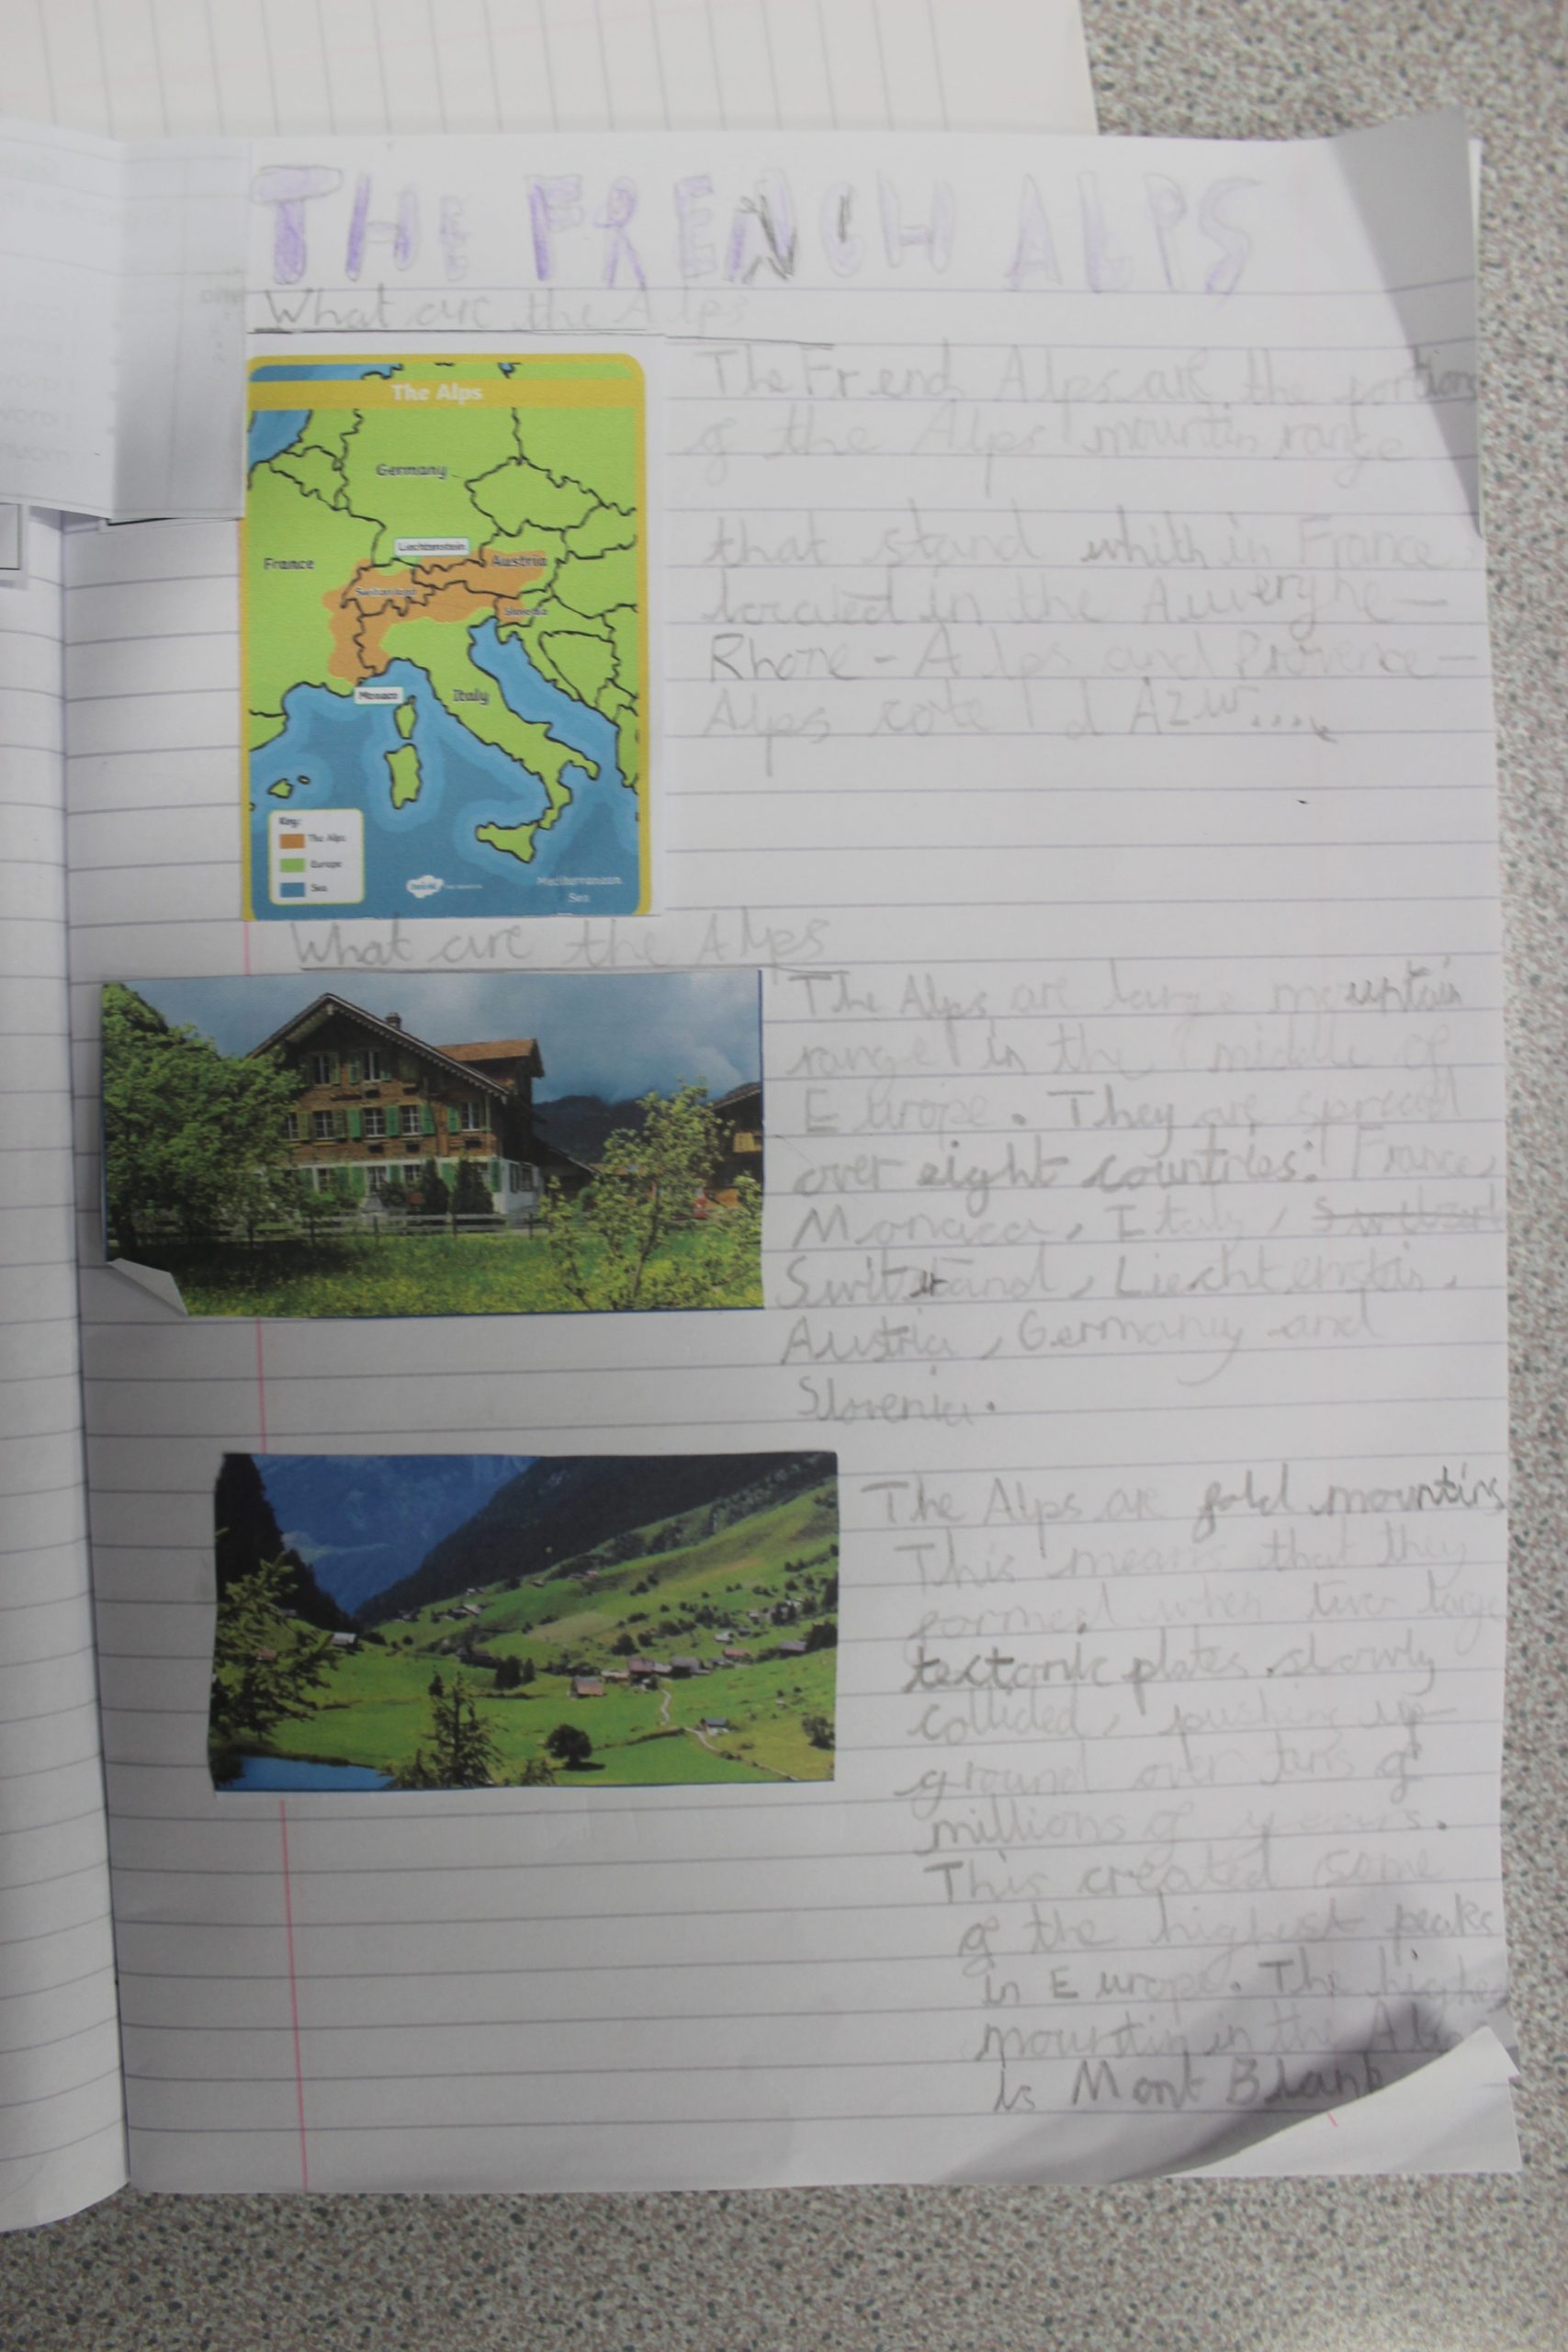 THE FRENCH ALPS
What are the Alps
The Alps
Germany
Liechtenstein
France
Austria
Switzerland
Slovenia
Monaco
Italy
Key:
The Alps
Europe
Sea
Mediterranean
Sea
The Frend Alps are the portion
of the Alps mountin range
that stand whith in France
located in the Auverghe -
Rhone - Alps and Provence -
Alps cote d Azur....
What are the Alps
The Alps are large mountain
range in the middle of
Europe. They are spread
over eight countries: France,
Monaco, Italy,
Switzerland, Liechtenstein,
Austria, Germany and
Slovenia.
The Alps are fold mountins
This means that they
formed when two large
tectonic plates slowly
collided, pushing up
ground over tens of
millions of years.
This created some
of the highest peaks
in Europe. The highe
mountin in the Alp
is Mont Blank